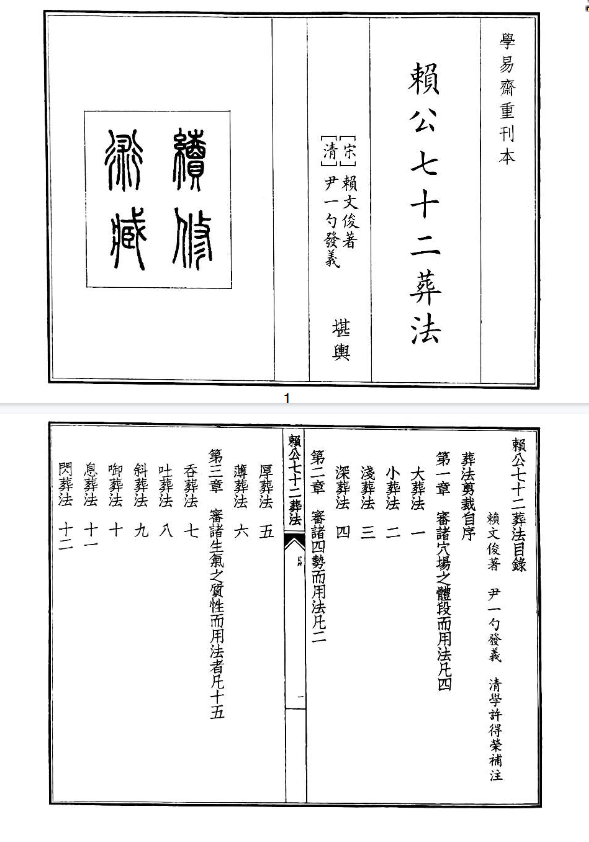 學易齋重刊本
賴公七十二葬法
[宋]賴文俊著
[清]尹一勺發義
堪輿
續修
術藏
1
賴公七十二葬法目錄
賴文俊著 尹一勺發義 清學許得榮補注
葬法剪裁自序
第一章 審諸穴場之體段而用法凡四
大葬法 一
小葬法 二
淺葬法 三
深葬法 四
第二章 審諸四勢而用法凡二
賴公七十二葬法
一
厚葬法 五
薄葬法 六
第三章 審諸生氣之質性而用法者凡十五
吞葬法 七
吐葬法 八
斜葬法 九
啣葬法 十
息葬法 十一
閃葬法 十二